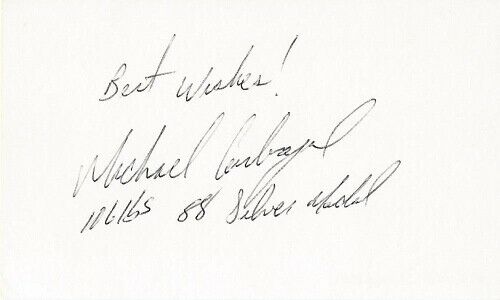 Best Wishes!
Michael Carbajal
106 lbs 88 Silver Medal